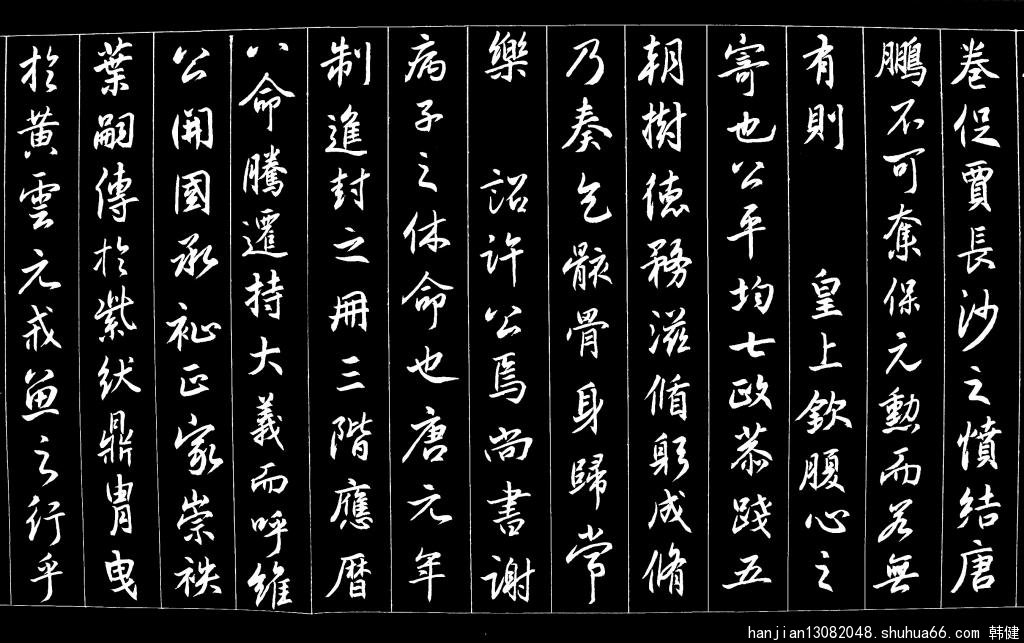 卷促賈長沙之憤結唐
鵬不可奪保元勳而若無
有則 皇上欽腹心之
寄也公平均七政恭踐五
朝樹德務滋脩躬成脩
乃奏乞骸骨身歸常
樂 詔許公焉尚書謝
病子之休命也唐元年
制進封之冊三階應曆
八命騰遷持大義而呼維
公開國承祉正家崇袟
葉嗣傳於紫紱鼎胄曳
於黃雲元戎之行乎
hanjian13082048.shuhua66.com 韩健